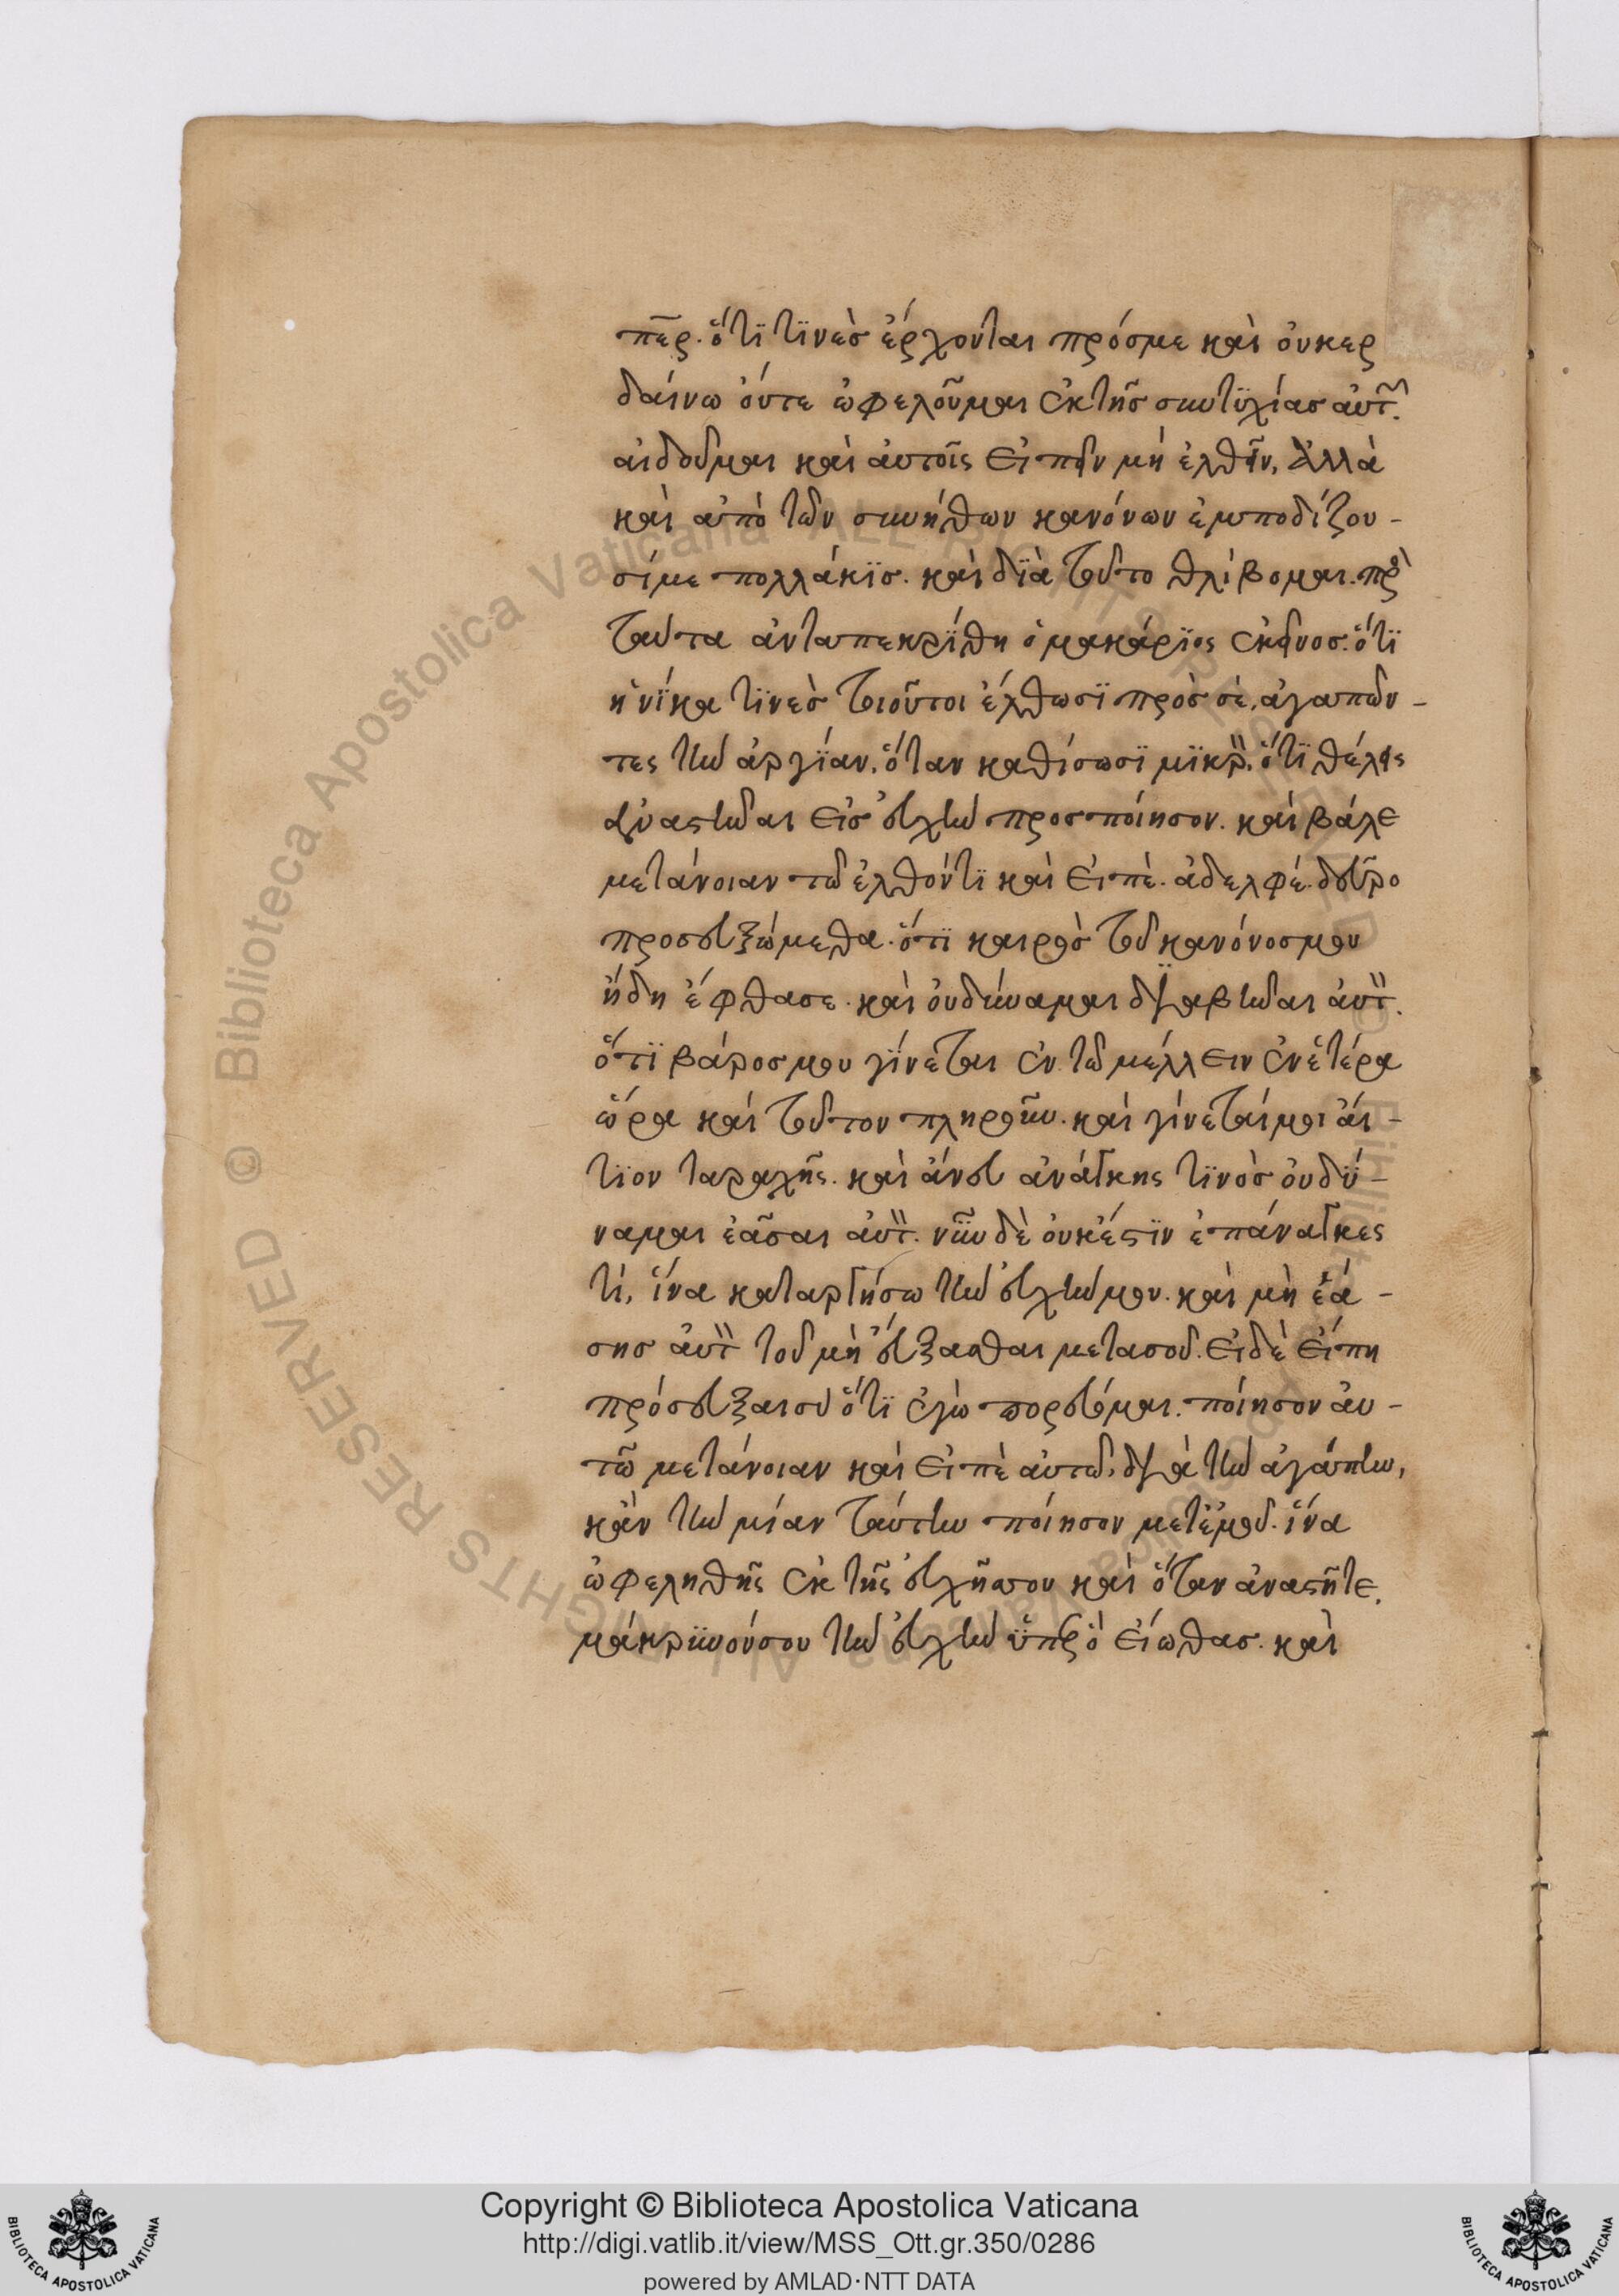 πε̃ρ. ὅτϊ τϊνὲσ ἐρχονται πρόσμε καὶ ὀυκερ
δαίνω ὀύτε ὠφελοῦμαι ἐκτῆσ συντϋχίασ αὐτ͂.
αιδοῦμαι καὶ ἀυτοῖς εἰπεῖν μὴ ἐλθεῖν, ἀλλὰ
καὶ απὸ τῶν συνήθων κανόνων ἐμποδίζου-
σίμε πολλάκϊσ. καὶ δϊὰ τοῦτο θλίβομαι. πρ̀
ταῦτα ἀνταπεκρΐθη ὁ μακάρϊος ἐκεῖνοσ. ὅτϊ
ἡνΐκα τϊνὲσ τοιοῦτοι ἔλθωσϊ πρὸσ σὲ, ἀγαπῶν-
τες τὴν ἀργΐαν, ὅταν καθίσωσϊ μϊκρ̀, ὅτϊ θέλεις
ἀναστῆναι εἰσ εὐχὴν προσποίησον. καὶ βάλε
μετάνοιαν τῶ ἐλθόντϊ καὶ εἰπὲ. ἀδελφέ. δεῦρο
προσευξώμεθα. ὅτϊ καιρὸσ τοῦ κανόνοσμου
ἤδη ἔφθασε. καὶ ὀυδύναμαι δϊαβῆναι ἀυτ̀.
ὅτϊ βάροσμου γΐνεται ἐν τῶ μέλλειν ἐνἑτέρα
ὥρα καὶ τοῦτον πληροῦν. καὶ γίνεταίμοι ἄι-
τϊον ταραχῆς. καὶ ἄνευ ἀνάγκης τϊνὸσ ὀυδΰ-
ναμαι ἐᾶσαι ἀυτ̀. νῦν δὲ ὀυκέστϊν ἐπάναγκες
τί, ἵνα καταργήσω τὴν εὐχὴνμου. καὶ μὴ ἐά-
σησ ἀυτ̀ τοῦ μὴ εὔξασθαι μετασοῦ. εἰδὲ εἴπη
πρόσευξαισὺ ὅτϊ ἐγὼ πορεύομαι. ποίησον ἀυ-
τῶ μετάνοιαν καὶ εἰπὲ αὐτῶ, δϊὰ τὴν ἀγάπην,
κἂν τὴν μίαν ταύτην ποίησον μετἐμοῦ. ἵνα
ὠφεληθῆς ἐκ τῆς εὐχῆσσου καὶ ὅταν ἀναστῆτε.
μάκρϋνούσου τὴν εὐχὴν ὑπὲρ ὃ εἴωθασ. καὶ
Copyright © Biblioteca Apostolica Vaticana
http://digi.vatlib.it/view/MSS_Ott.gr.350/0286
powered by AMLAD·NTT DATA